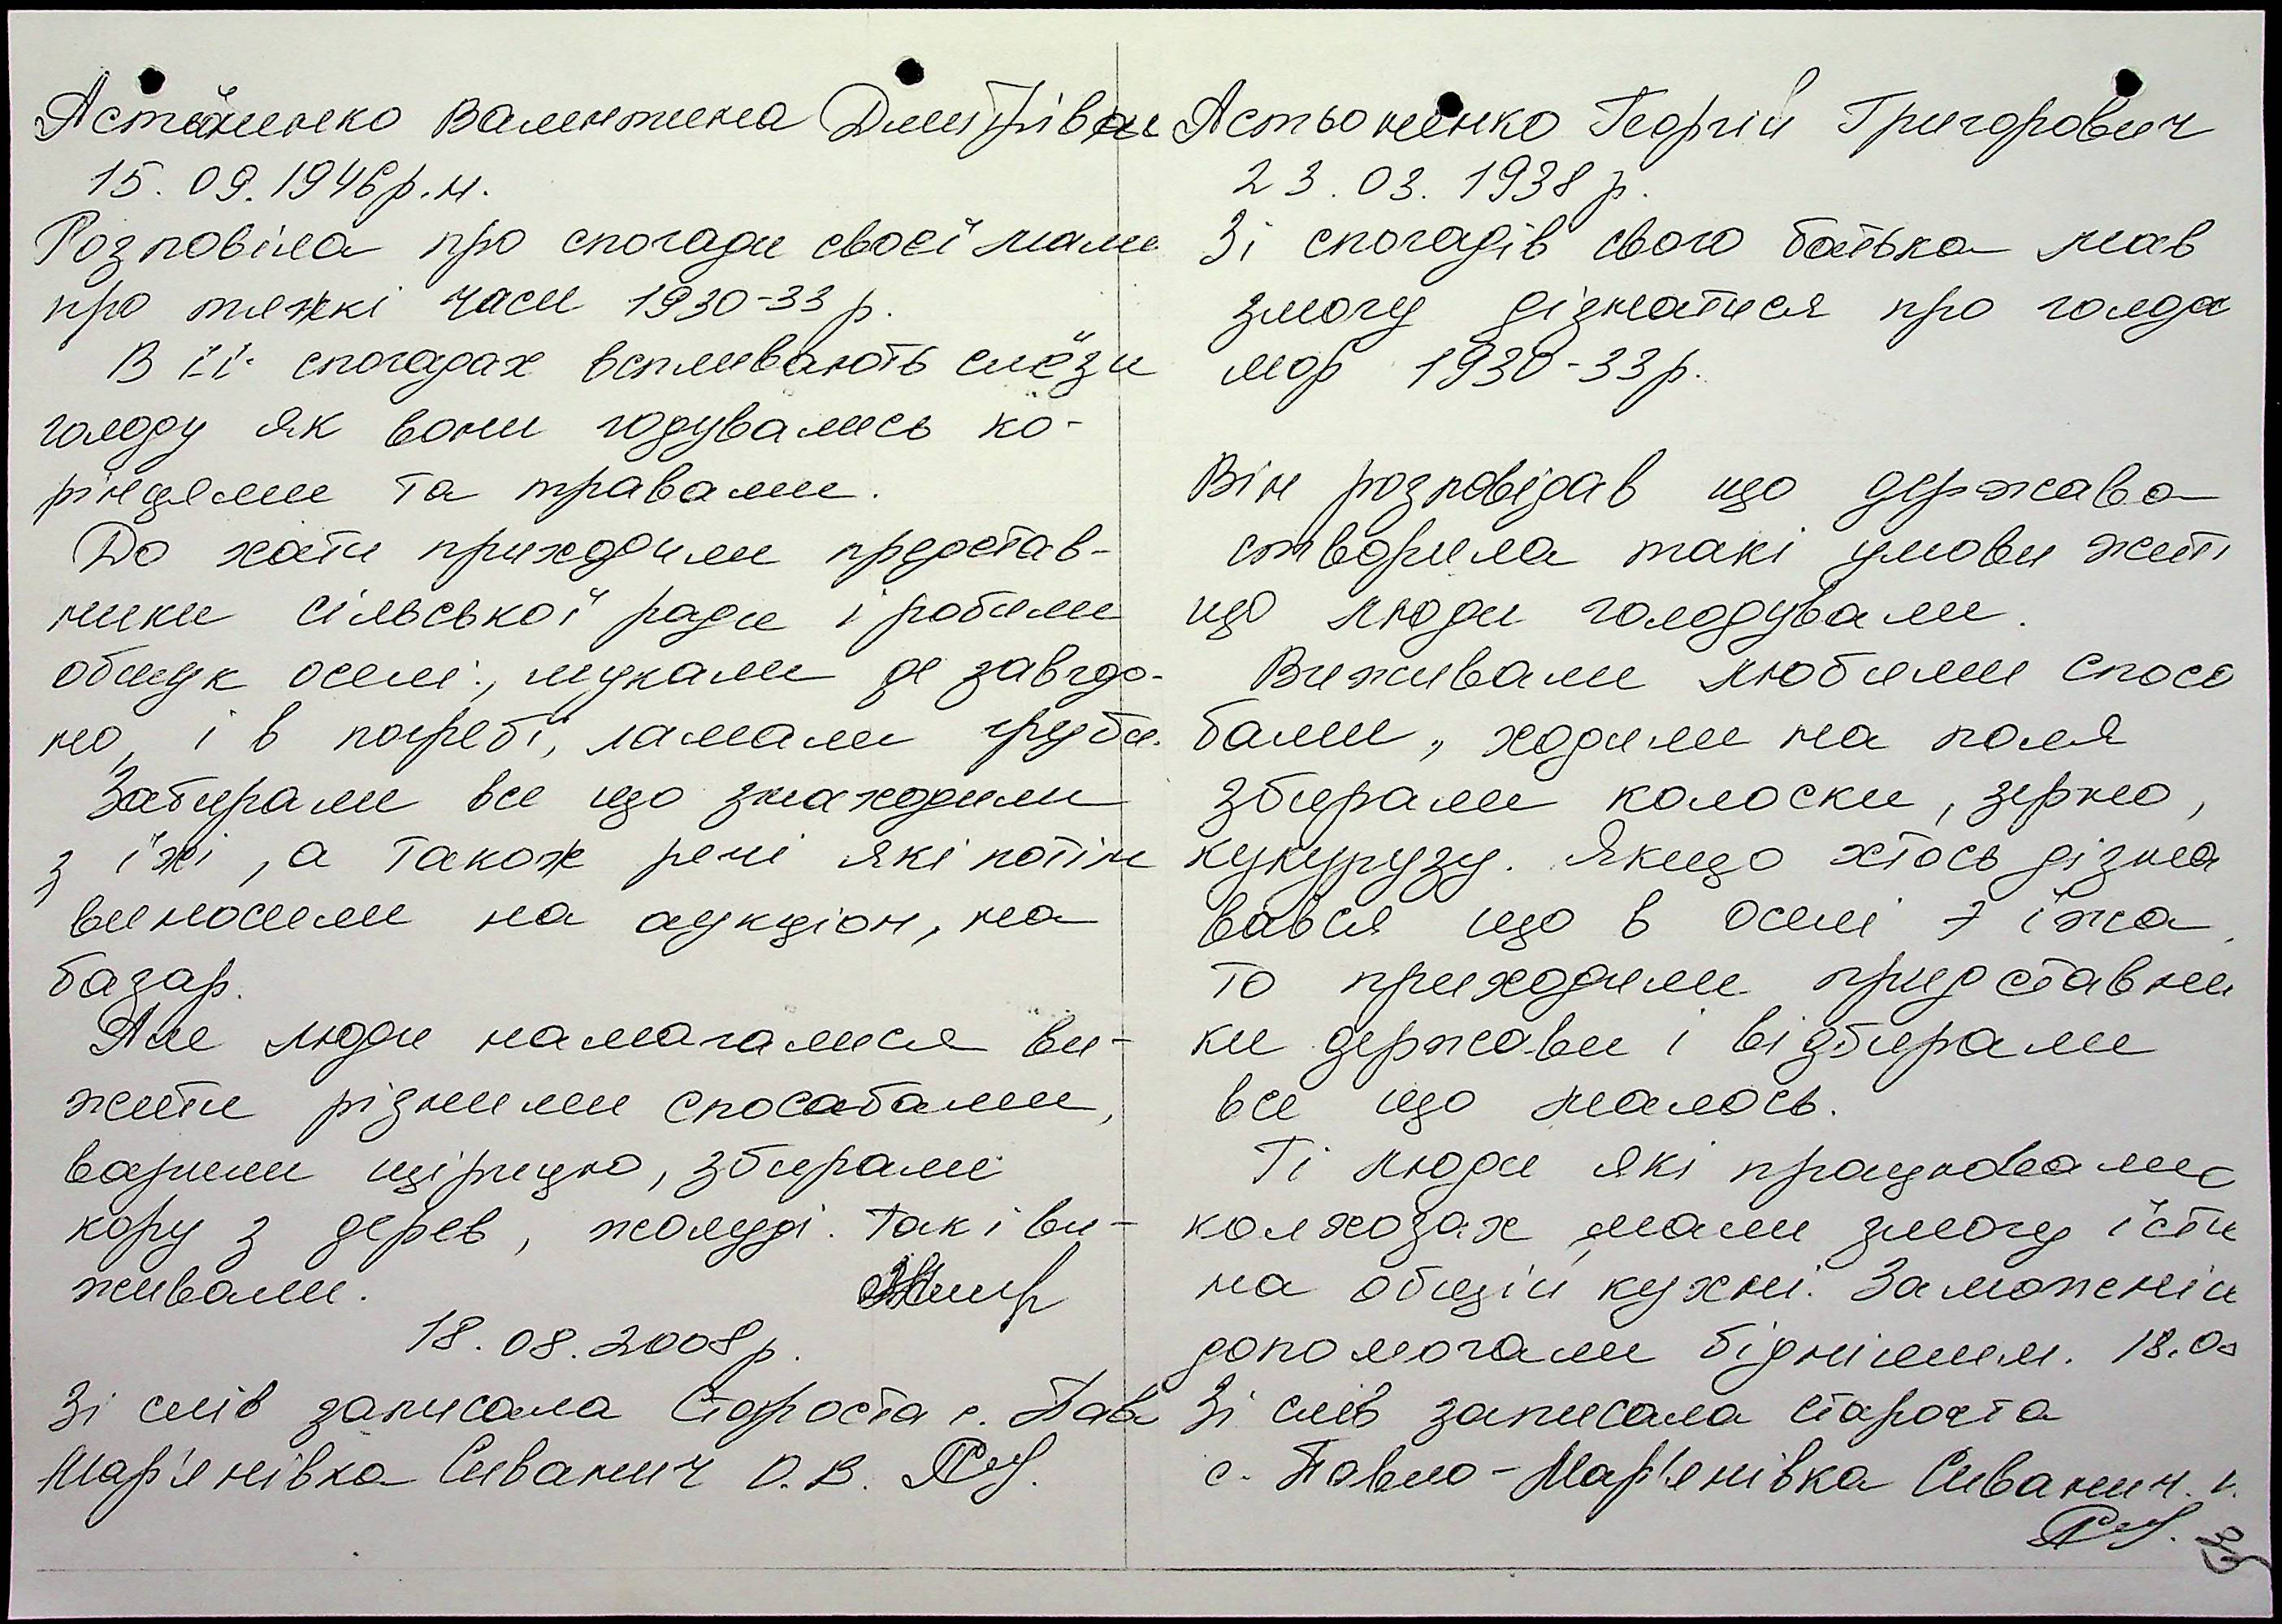 Астьоменко Валентина Дмитрівна
15.09.1946р.н.
Розповіла про спогади своєї мами
про тяжкі часи 1930-33 р.
В її спогадах вспливають слёзи
голоду як вони годувались ко-
рінцями та травами.
До хати приходили предстaв-
ники сільської ради і робили
обшук оселі, шукали де завгод-
но, і в погребі, ламали груби.
Забирали все що знаходили
з їжі, а також речі які потім
виносили на аукціон, на
базар.
Але люди намагалися ви-
жити різними спосабами,
варили щірицю, збирали
кору з дерев, жолуді. Так і ви-
живали.
18.08.2008р.
Зі слів записала Староста с. Пав
Мар'янівка Сиванич О.В.
Астьоменко Георгій Григорович
23.03.1938 р.
Зі спогадів свого батька мав
змогу дізнатися про голода
мор 1930-33р.
Він розповідав що держава
створила такі умови житі
що люди голодували.
Виживали любими спосо
бами, ходили на поля
збирали колоски, зерно,
кукурузу. Якщо хтось дізна
вався що в оселі є їжа,
то приходили придставни
ки держави і відбирали
все що малось.
Ті люди які працювали с
колхозах, мали змогу їсти
на общій кухні. Заможнін
допомогали біднішим. 18.0
Зі слів записала староста
с. Павло-Мар'янівка Сиванич.